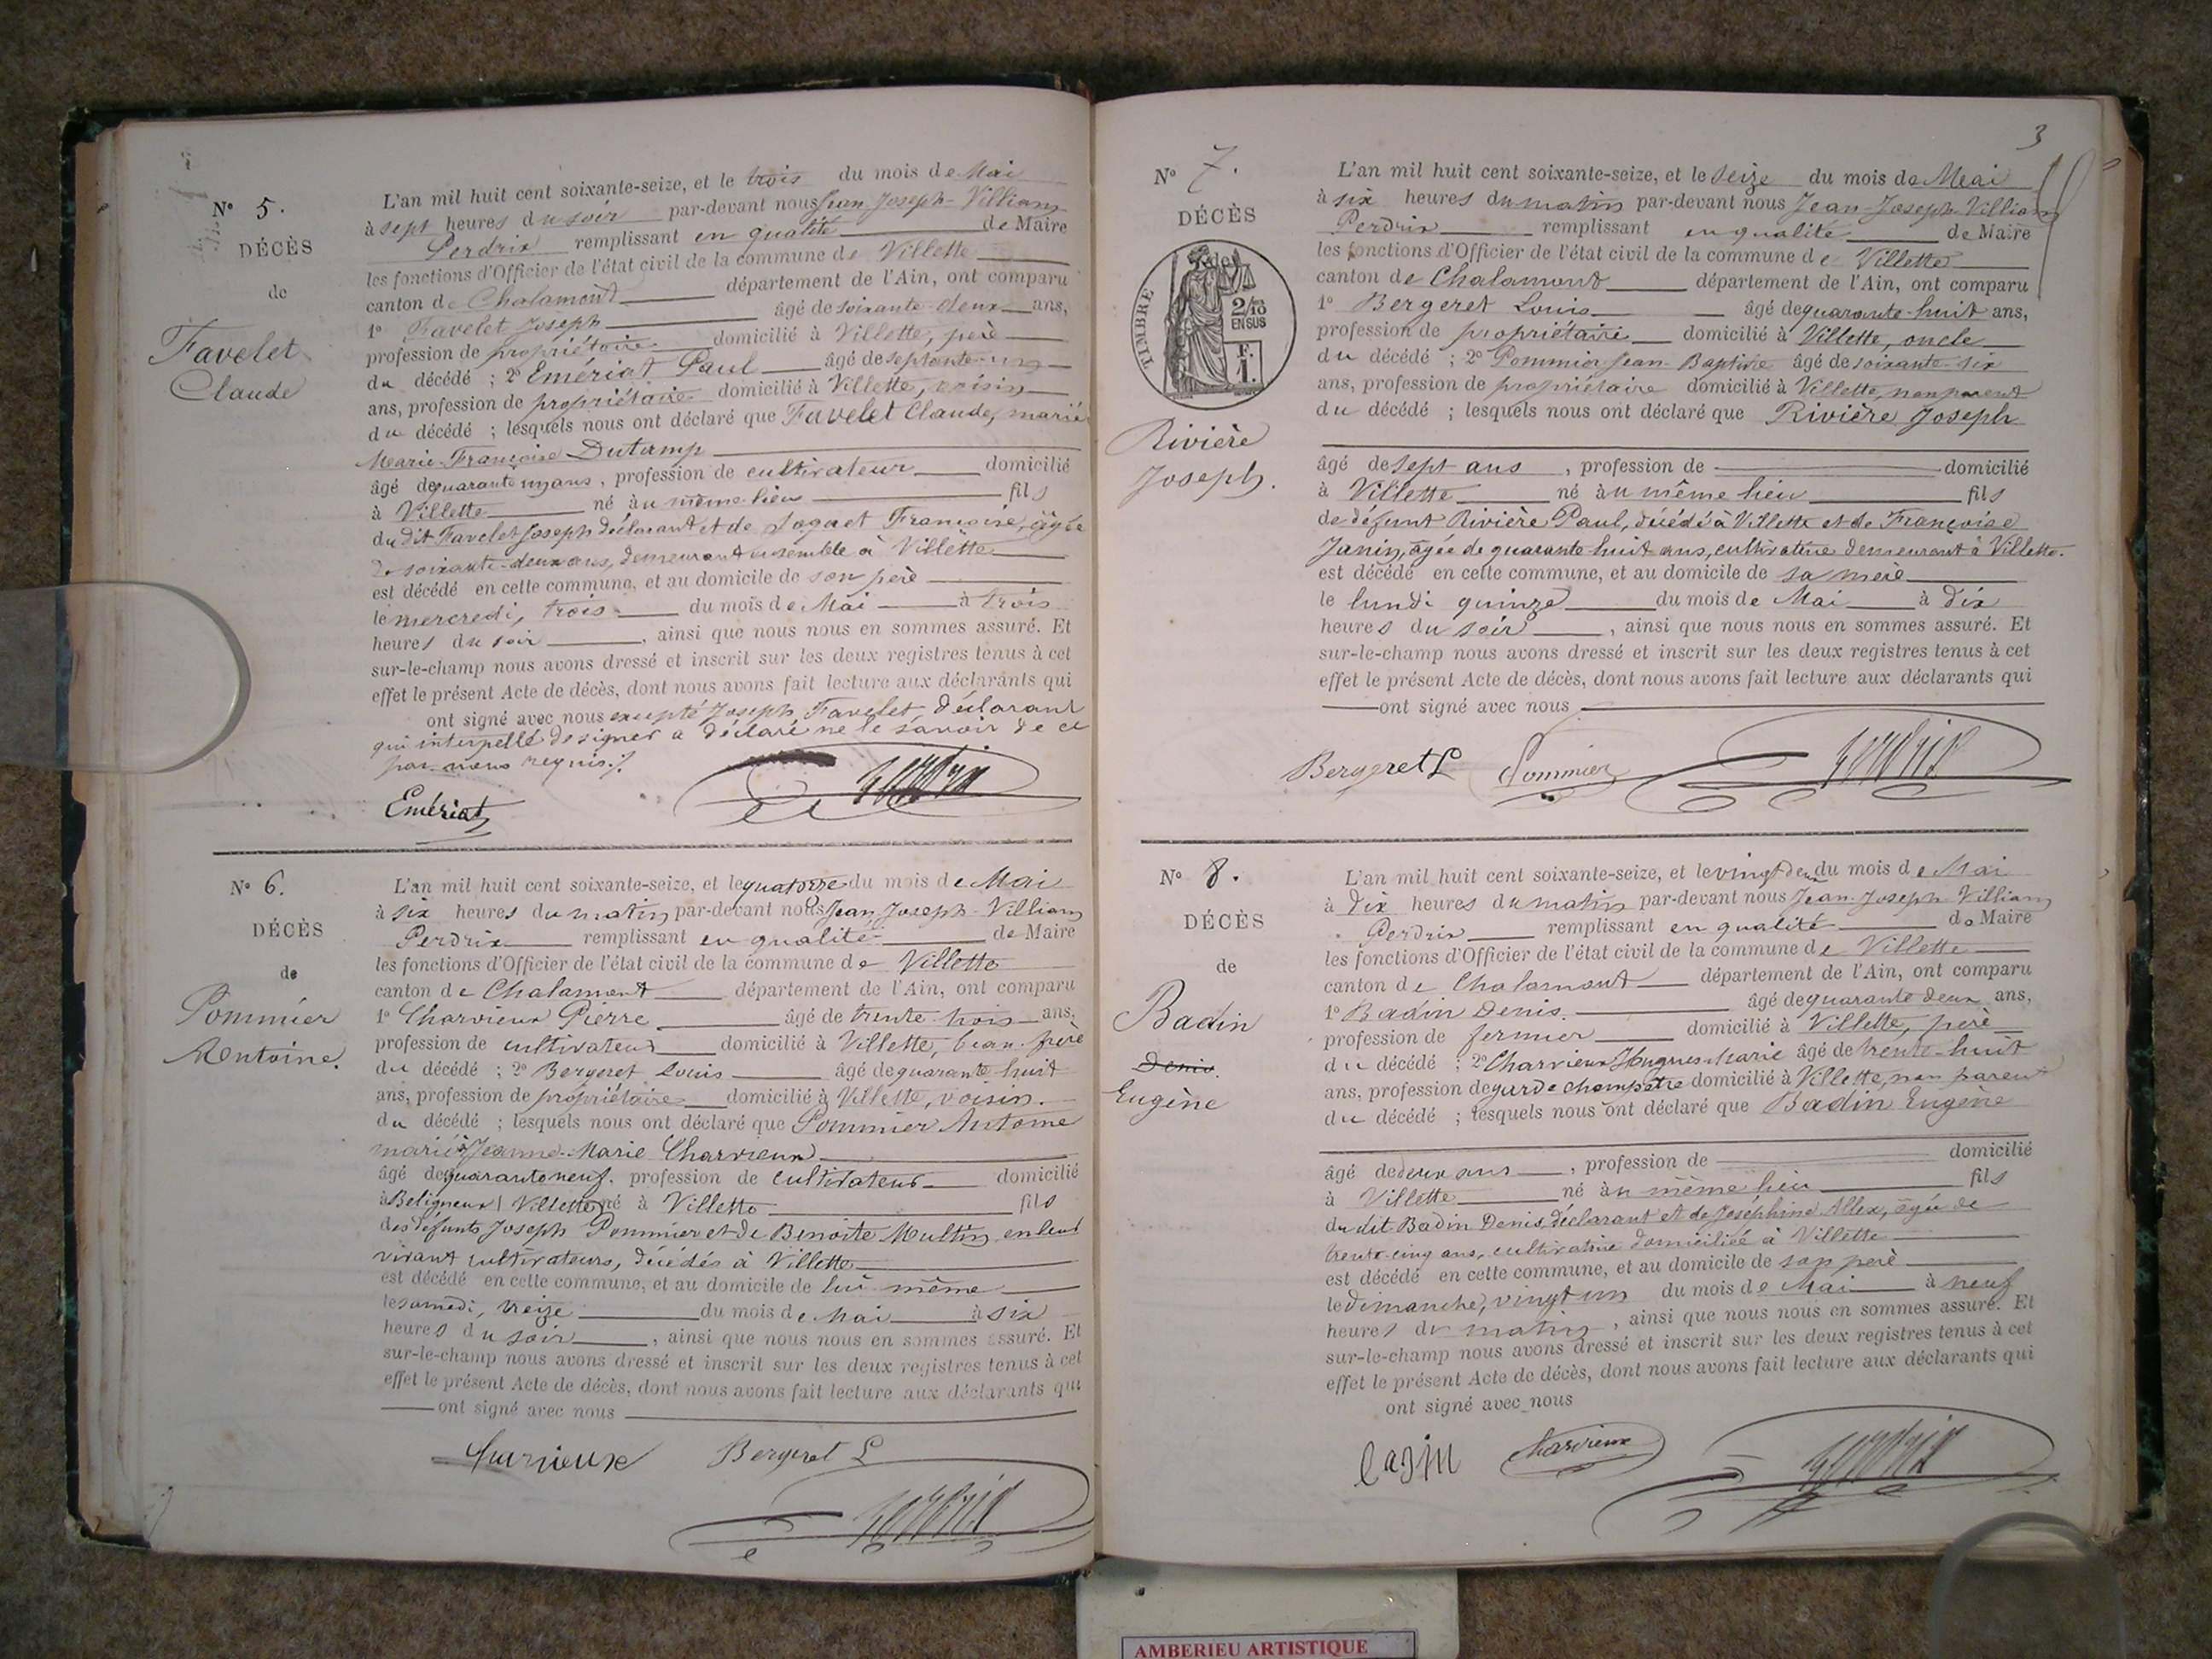 N° 5.
DÉCÈS
de
Favelet
Claude
L'an mil huit cent soixante-seize, et le trois du mois de Mai
à sept heures du soir par-devant nous Jean Joseph-Villiam
Perdrix remplissant en qualité de Maire
les fonctions d'Officier de l'état civil de la commune de Villette
canton de Chalamont département de l'Ain, ont comparu
1° Favelet Joseph âgé de soixante-deux ans,
profession de propriétaire domicilié à Villette, père
du décédé ; 2° Emériat Paul âgé de septante-un
ans, profession de propriétaire domicilié à Villette, voisin
du décédé ; lesquels nous ont déclaré que Favelet Claude, marié
Marie-Françoise Dutamp
âgé de quarante un ans, profession de cultivateur domicilié
à Villette né au même lieu fils
du dit Favelet Joseph déclarant et de Françoise, âgée
de soixante-deux ans, demeurant ensemble à Villette
est décédé en cette commune, et au domicile de son père
le mercredi, trois du mois de Mai à trois
heures du soir, ainsi que nous nous en sommes assuré. Et
sur-le-champ nous avons dressé et inscrit sur les deux registres tenus à cet
effet le présent Acte de décès, dont nous avons fait lecture aux déclarants qui
ont signé avec nous excepté Joseph Favelet, déclarant
qui interpellé de signer a déclaré ne le savoir de ce
par nous requis ./.
Emériat Perdrix
N° 6.
DÉCÈS
de
Pommier
Antoine.
L'an mil huit cent soixante-seize, et le quatorze du mois de Mai
à six heures du matin par-devant nous Jean Joseph-Villiam
Perdrix remplissant en qualité de Maire
les fonctions d'Officier de l'état civil de la commune de Villette
canton de Chalamont département de l'Ain, ont comparu
1° Charvieux Pierre âgé de trente-trois ans,
profession de cultivateur domicilié à Villette, beau-frère
du décédé ; 2° Bergeret Louis âgé de quarante-huit
ans, profession de propriétaire domicilié à Villette, voisin.
du décédé ; lesquels nous ont déclaré que Pommier Antoine
marié à Jeanne-Marie Charvieux
âgé de quarante neuf, profession de cultivateur domicilié
à Beligneux (Villette) né à Villette fils
des défunts Joseph Pommier et de Benoite Multin en leur
vivant cultivateurs, décédés à Villette
est décédé en cette commune, et au domicile de lui-même
le samedi, treize du mois de Mai à six
heures du soir, ainsi que nous nous en sommes assuré. Et
sur-le-champ nous avons dressé et inscrit sur les deux registres tenus à cet
effet le présent Acte de décès, dont nous avons fait lecture aux déclarants qui
ont signé avec nous
Charvieux Bergeret L
Perdrix
3
N° 7.
DÉCÈS
de
TIMBRE
2/10
EN SUS
F.
1.
Rivière
Joseph.
L'an mil huit cent soixante-seize, et le seize du mois de Mai
à six heures du matin par-devant nous Jean-Joseph Villiam
Perdrix remplissant en qualité de Maire
les fonctions d'Officier de l'état civil de la commune de Villette
canton de Chalamont département de l'Ain, ont comparu
1° Bergeret Louis âgé de quarante-huit ans,
profession de propriétaire domicilié à Villette, oncle
du décédé ; 2° Pommier Jean-Baptiste âgé de soixante-six
ans, profession de propriétaire domicilié à Villette, non parent
du décédé ; lesquels nous ont déclaré que Rivière Joseph
âgé de sept ans, profession de domicilié
à Villette né au même lieu fils
de défunt Rivière Paul, décédé à Villette et de Françoise
Janin, âgée de quarante huit ans, cultivatrice demeurant à Villette.
est décédé en cette commune, et au domicile de sa mère
le lundi quinze du mois de Mai à dix
heures du soir, ainsi que nous nous en sommes assuré. Et
sur-le-champ nous avons dressé et inscrit sur les deux registres tenus à cet
effet le présent Acte de décès, dont nous avons fait lecture aux déclarants qui
ont signé avec nous
Bergeret L Pommier Perdrix
N° 8.
DÉCÈS
de
Badin
Denis.
Eugène
L'an mil huit cent soixante-seize, et le vingt deux du mois de Mai
à dix heures du matin par-devant nous Jean-Joseph Villiam
Perdrix remplissant en qualité de Maire
les fonctions d'Officier de l'état civil de la commune de Villette
canton de Chalamont département de l'Ain, ont comparu
1° Badin Denis. âgé de quarante deux ans,
profession de fermier domicilié à Villette, père
du décédé ; 2° Charvieux Hugues-Marie âgé de trente-huit
ans, profession de garde champêtre domicilié à Villette, non parent
du décédé ; lesquels nous ont déclaré que Badin Eugène
âgé de deux ans, profession de domicilié
à Villette né au même lieu fils
du dit Badin Denis, déclarant et de Joséphine Allex, âgée de
trente-cinq ans, cultivatrice domiciliée à Villette
est décédé en cette commune, et au domicile de son père
le Dimanche, vingt un du mois de Mai à neuf
heures du matin, ainsi que nous nous en sommes assuré. Et
sur-le-champ nous avons dressé et inscrit sur les deux registres tenus à cet
effet le présent Acte de décès, dont nous avons fait lecture aux déclarants qui
ont signé avec nous
Charvieux Perdrix
AMBERIEU ARTISTIQUE